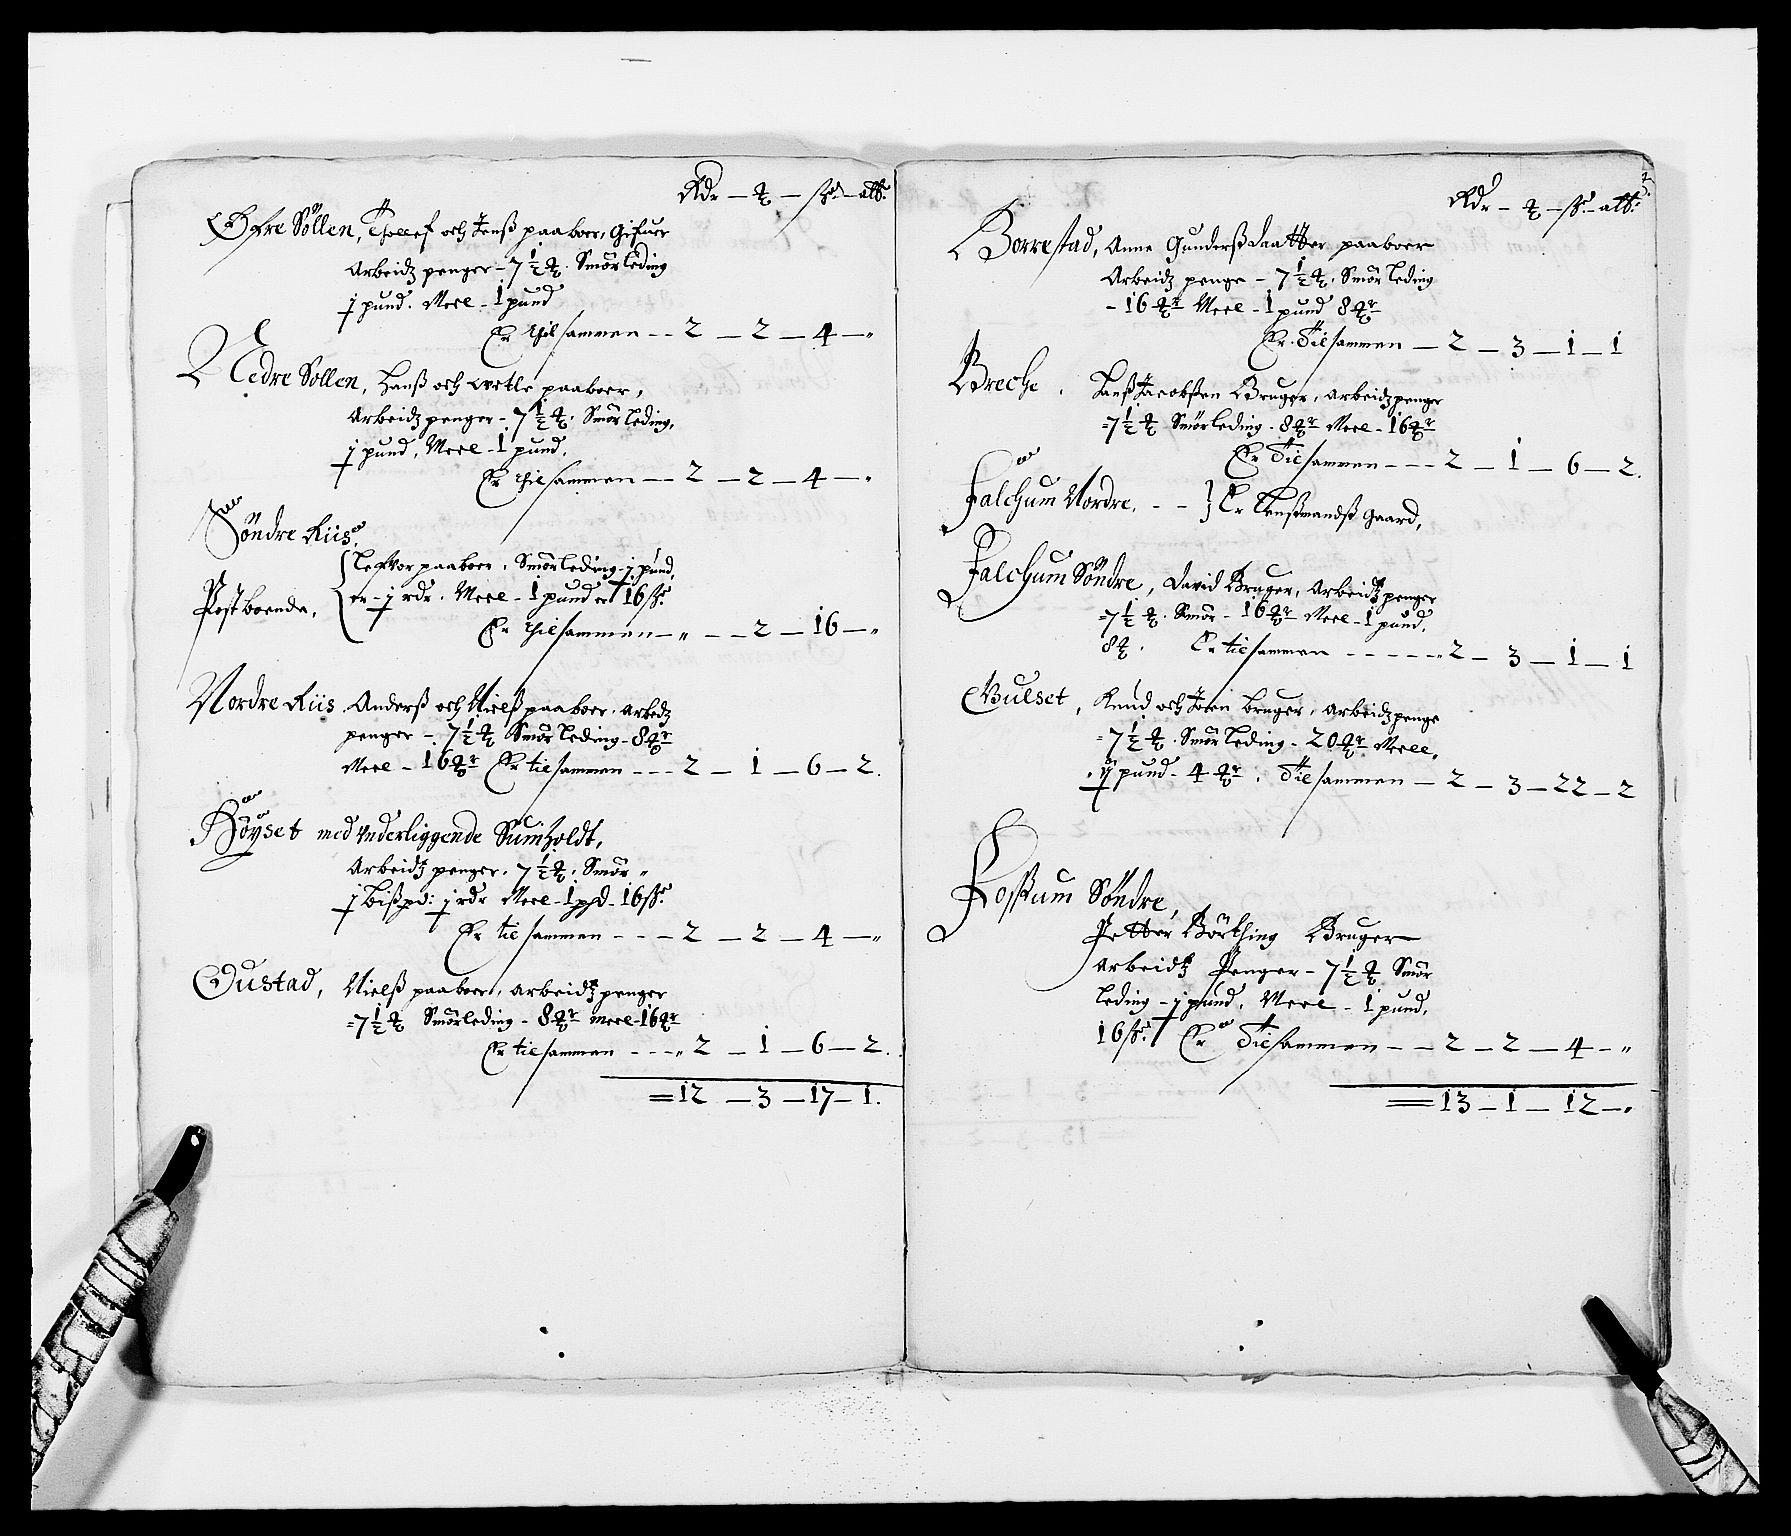 Rdr — ꝶ — ſs — alb:
Øfre Sollen, Thollef och Jenß paaboer, Gifuer
Arbeidz penger - 7½ ꝶ. Smør leding
j pund. Meel - 1 pund
Er thilsammen — 2 — 2 — 4 — "
Nedre Sollen, Hanß och wetle paaboer,
Arbeidz penger - 7½ ꝶ. Smør leding,
j pund, Meel - 1 pund.
Er thilsammen — 2 — 2 — 4 — "
Söndre Riis.
Lefvor paaboer, Smör leding - j pund,
Post boende,
er - j rdr. Meel - 1 pund er 16 ſs.
Er thilsammen — " — 2 — 16 — "
Nordre Riis Anderß och Nielß paaboer. arbedz
penger - 7½ ꝶ Smör leding - 8 ꝶr
Meel - 16 ꝶr Er tilsammen --- 2 — 1 — 6 — 2.
Höyset med vnderliggende Sumholdt,
Arbeidz penger. 7½ ꝶ. Smör "
j bißpd: j rdr Meel - 1 pd - 16 ſs.
Er tilsammen --- 2 — 2 — 4 — "
Oustad, Nielß paaboer, arbeidz penger
= 7½ ꝶ Smörleding - 8 ꝶr meel - 16 ꝶr
Er tilsammen --- " 2 — 1 — 6 — 2.
= 12 — 3 — 17 — 1.
Rdr — ꝶ — ſs — alb:
Borrestad, Anne Gunderßdaatter paaboer
Arbeidz penge - 7½ ꝶ. Smör leding
- 16 ꝶr Meel - 1 pund 8 ꝶr
Er. Tilsammen — 2 — 3 — 1 — 1
Breche. Hanß Jacobßen Bruger, arbeidzpenger
= 7½ ꝶ Smörleding - 8 ꝶr Meel - 16 ꝶr
Er Tilsammen --- 2 — 1 — 6 — 2.
Falchum Nordre. - - } Er Lenßmandß gaard,
Falchum Söndre, David Bruger, Arbeidz penger
= 7½ ꝶ. Smör - 16 ꝶr Meel - 1 pund.
8 ꝶ. Er tilsammen ----- " 2 — 3 — 1 — 1
Gulset, Knud och Joen bruger, arbeidz penge
= 7½ ꝶ. Smör leding - 20 ꝶr Meell,
ij pund - 4 ꝶr. Tilsammen — 2 — 3 — 22 — 2
Foßum Söndre,
Petter Börthing Bruger
Arbeidz Penger - 7½ ꝶ Smör
leding - j pund, Meel - 1 pund,
16 ſs. Er Tilsammen --- 2 — 2 — 4 — "
= 13 — 1 — 12 — "